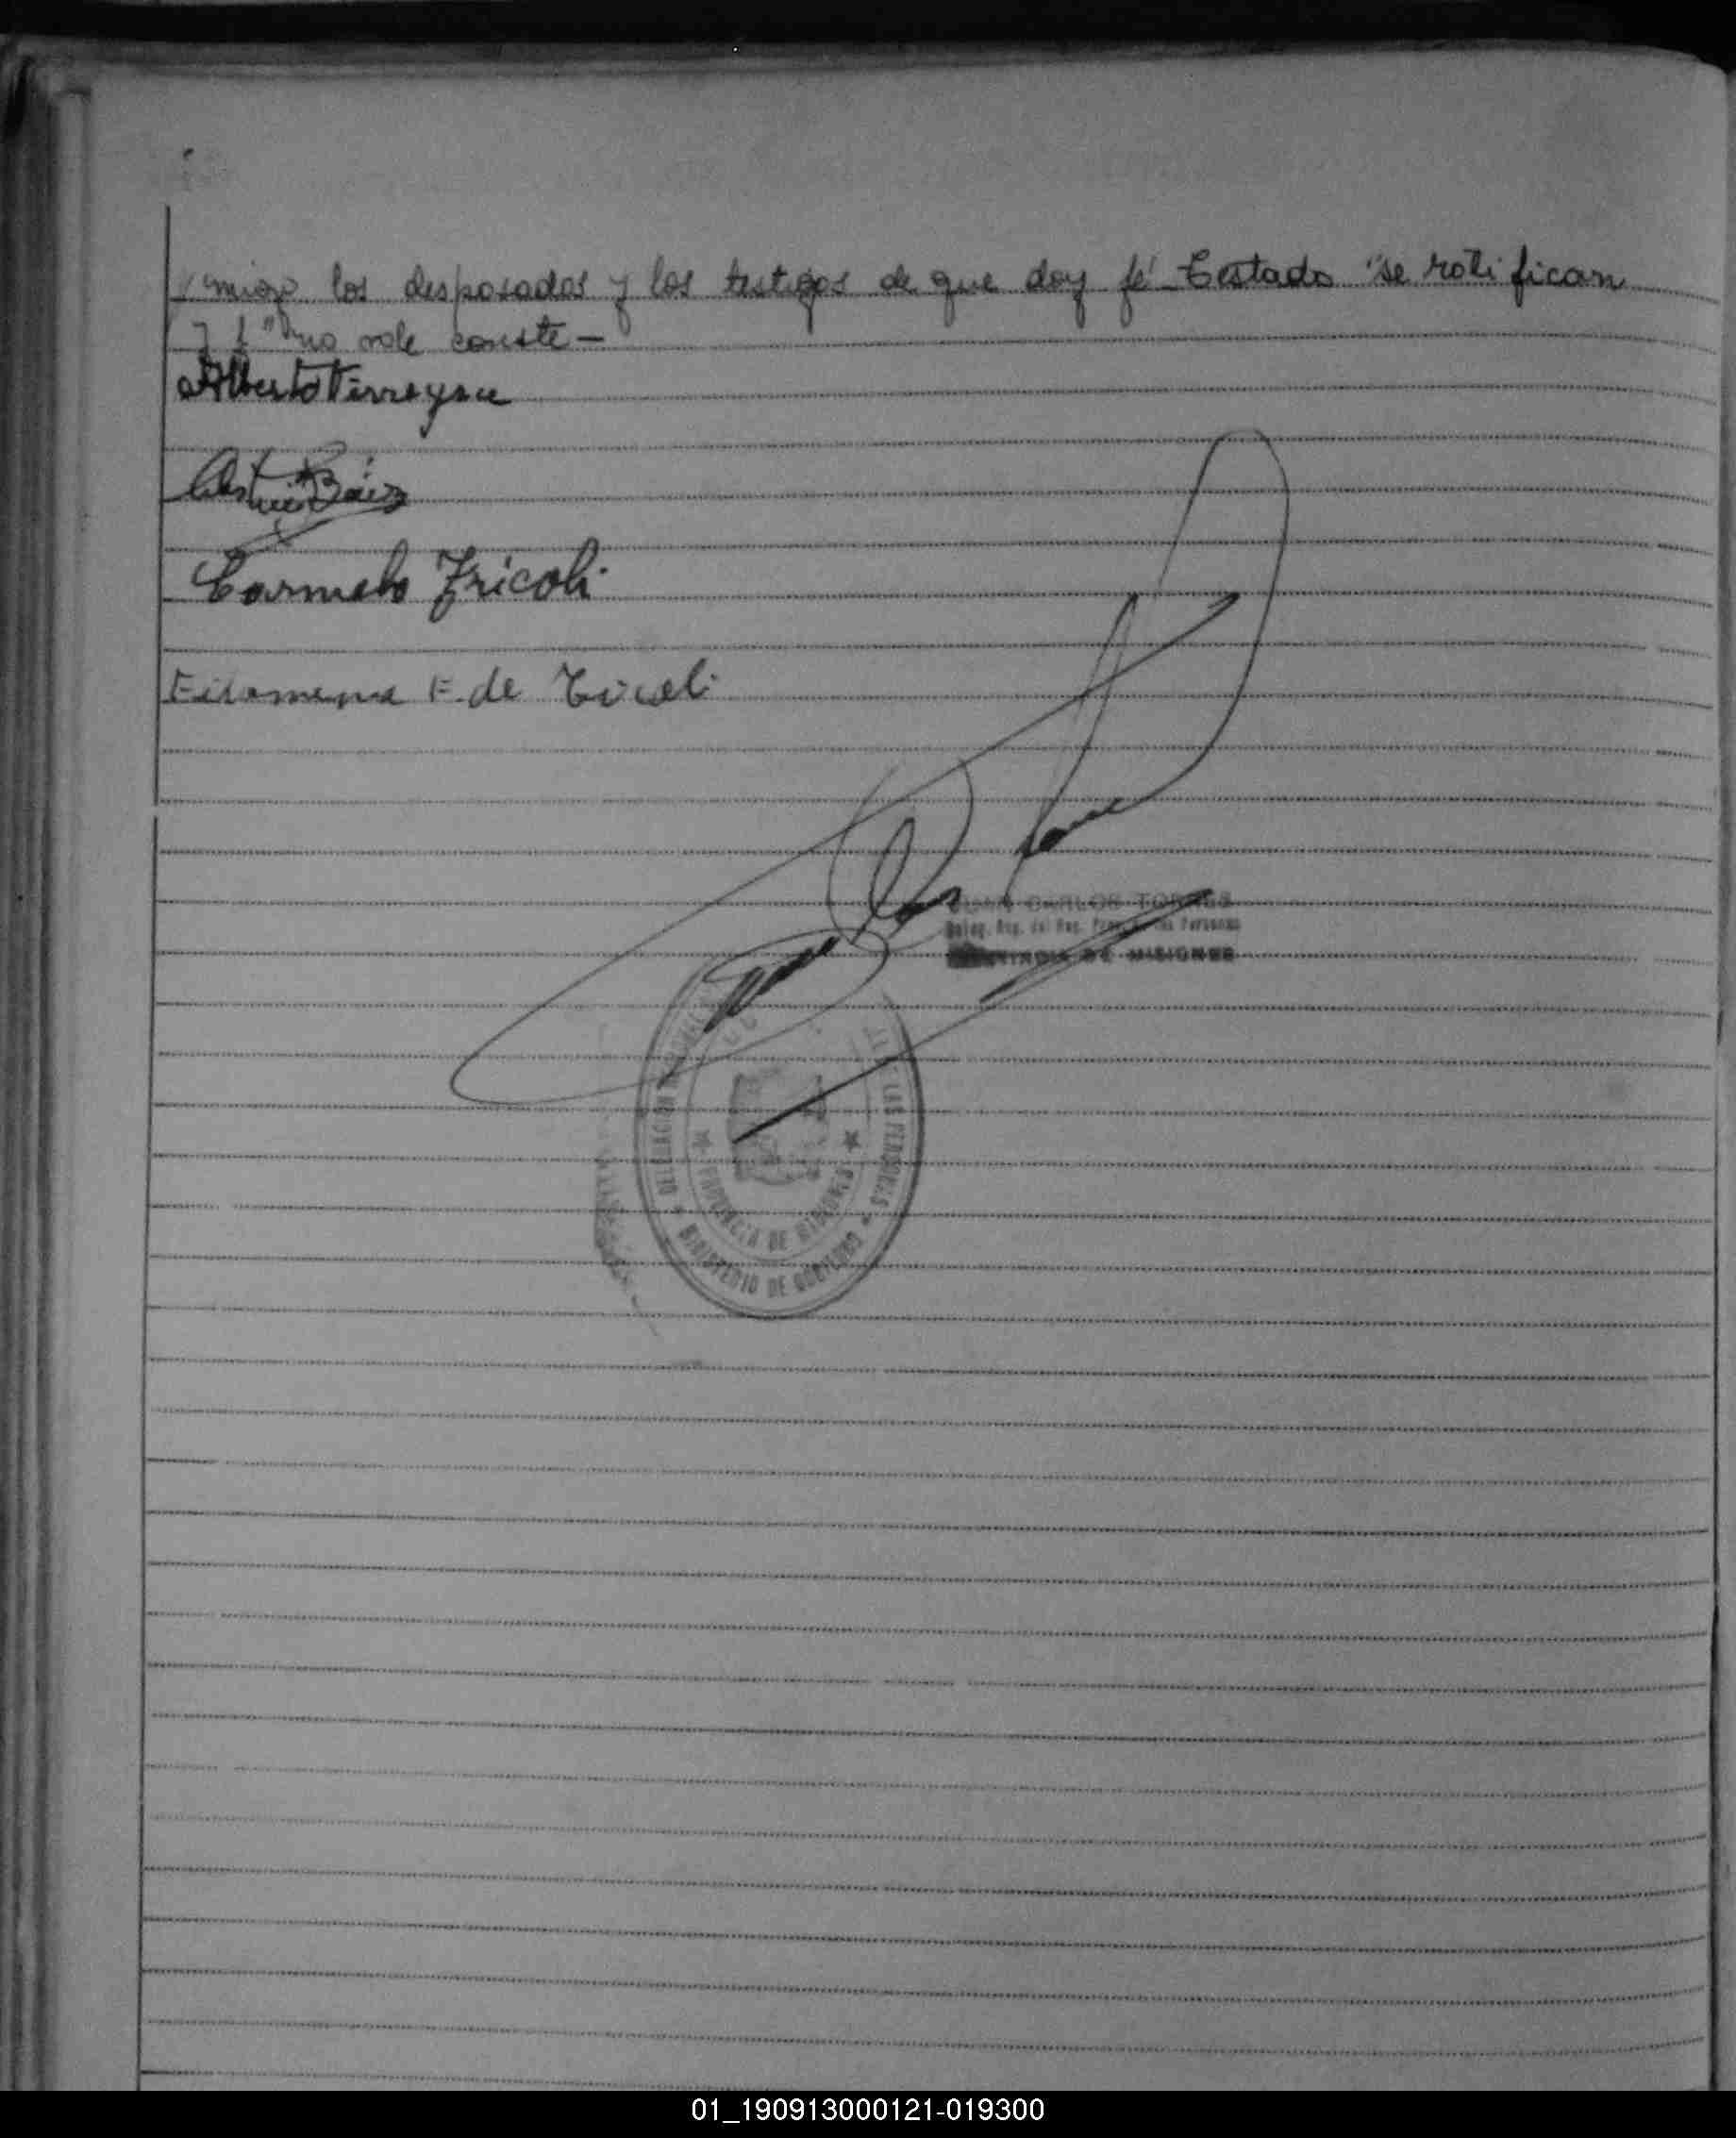 migo los desposados y los testigos de que doy fé. Testado "se ratifican
y f" no vale conste —
Alberto Ferreyra
Báez
Carmelo Tricoli
Filomena F. de Tricoli
JUAN CARLOS TORRES
Deleg. Reg. del Reg. Prov. de las Personas
PROVINCIA DE MISIONES
DELEGACION LAS PERSONAS
PROVINCIA DE MISIONES
MINISTERIO DE GOBIERNO
01_190913000121-019300